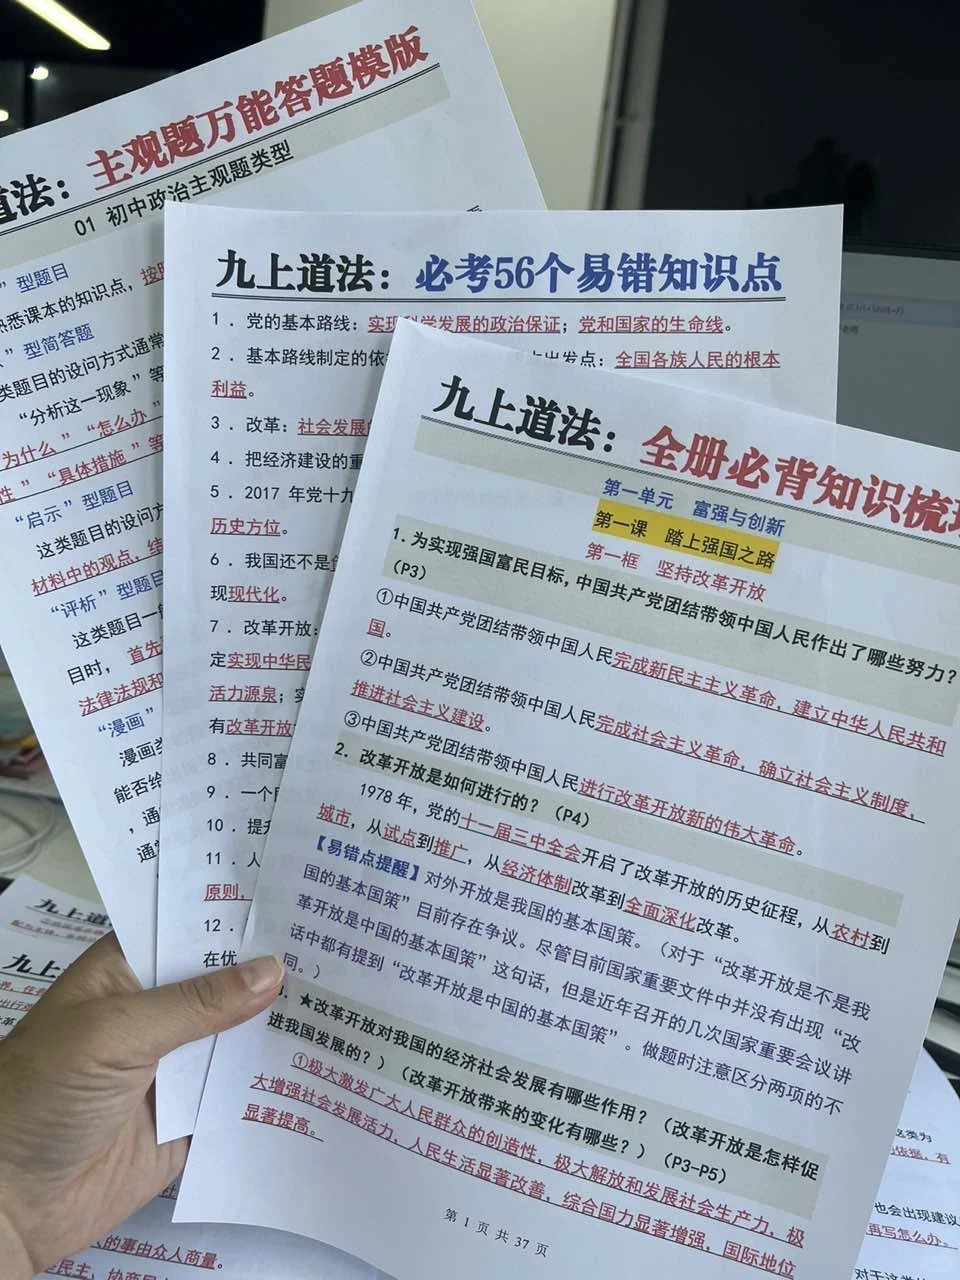 道法：主观题万能答题模版
01 初中政治主观题类型
”型题目
熟悉课本的知识点，按
”型简答题
类题目的设问方式通常
“分析这一现象”等
为什么”“怎么办”
性”“具体措施”等
“启示”型题目
这类题目的设问方
材料中的观点，结
“评析”型题目
这类题目一
目时，首先
法律法规和
“漫画”
漫画类
能否给
，通
通常
九上道法：必考56个易错知识点
1．党的基本路线：实现科学发展的政治保证；党和国家的生命线。
2．基本路线制定的依 出发点：全国各族人民的根本
利益。
3．改革：社会发展
4．把经济建设的重
5．2017 年党十九
历史方位。
6．我国还不是
现现代化。
7．改革开放：
定实现中华民
活力源泉；实
有改革开放
8．共同富
9．一个
10．提升
11．人
原则，
12．
在优
九上道法：全册必背知识梳理
第一单元 富强与创新
第一课 踏上强国之路
第一框 坚持改革开放
1.为实现强国富民目标，中国共产党团结带领中国人民作出了哪些努力？
（P3）
①中国共产党团结带领中国人民完成新民主主义革命，建立中华人民共和
国。
②中国共产党团结带领中国人民完成社会主义革命，确立社会主义制度，
推进社会主义建设。
③中国共产党团结带领中国人民进行改革开放新的伟大革命。
2. 改革开放是如何进行的？（P4）
1978 年，党的十一届三中全会开启了改革开放的历史征程，从农村到
城市，从试点到推广，从经济体制改革到全面深化改革。
【易错点提醒】对外开放是我国的基本国策。（对于“改革开放是不是我
国的基本国策”目前存在争议。尽管目前国家重要文件中并没有出现“改
革开放是中国的基本国策”这句话，但是近年召开的几次国家重要会议讲
话中都有提到“改革开放是中国的基本国策”。做题时注意区分两项的不
同。）
．★改革开放对我国的经济社会发展有哪些作用？（改革开放是怎样促
进我国发展的？）（改革开放带来的变化有哪些？）（P3-P5）
①极大激发广大人民群众的创造性，极大解放和发展社会生产力，极
大增强社会发展活力，人民生活显著改善，综合国力显著增强，国际地位
显著提高。
第 1 页 共 37 页
九上道
九上
这类为
依据，有
也会出现建议
再写怎么办。
对于这类
的事由众人商量。